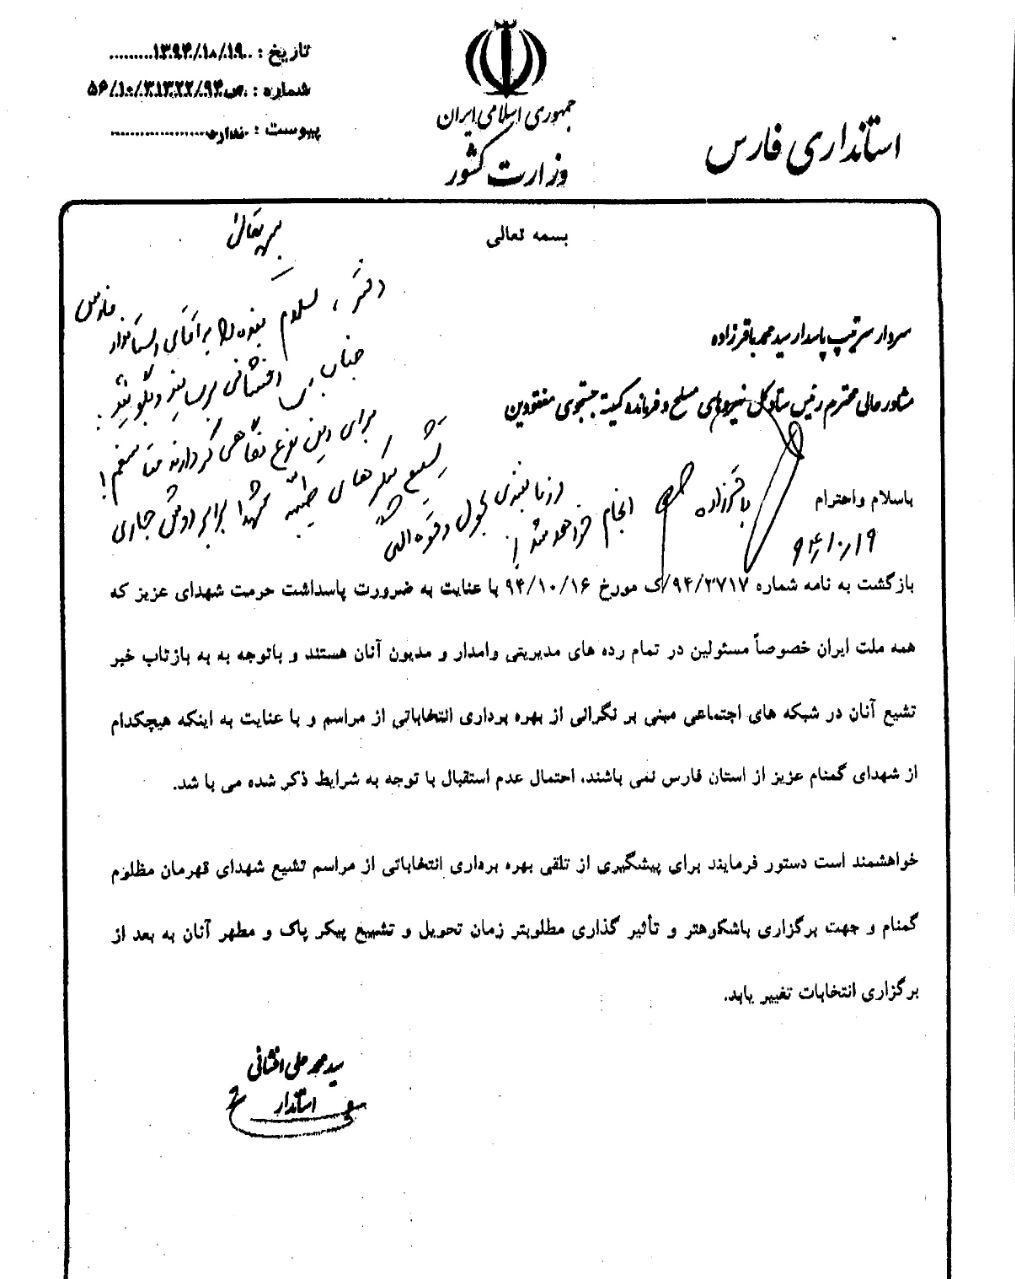 تاریخ : ۱۳۹۴/۱۰/۱۹
شماره : ص۵۶/۱۰/۳۱۳۲۲/۹۴
پیوست : ندارد
جمهوری اسلامی ایران
وزارت کشور
استانداری فارس
بسمه تعالی
سردار سرتیپ پاسدار سید محمد باقرزاده
مشاور عالی محترم رئیس ستاد کل نیروهای مسلح و فرمانده کمیته جستجوی مفقودین
باسلام و احترام
بسمه تعالی
دفتر ، سلام بنده را به آقای استاندار فارس
جناب افشانی برسانید و بگوئید :
برای این نوع نگاهی که دارند متاسفم !
تشییع پیکرهای طیبه شهدا برابر روش جاری
و زمانبندی بحول و قوه الهی
انجام خواهد شد !
باقرزاده
۹۴/۱۰/۱۹
بازگشت به نامه شماره ۹۴/۲۷۱۷/ک مورخ ۹۴/۱۰/۱۶ با عنایت به ضرورت پاسداشت حرمت شهدای عزیز که
همه ملت ایران خصوصاً مسئولین در تمام رده های مدیریتی وامدار و مدیون آنان هستند و باتوجه به به بازتاب خبر
تشیع آنان در شبکه های اجتماعی مبنی بر نگرانی از بهره برداری انتخاباتی از مراسم و با عنایت به اینکه هیچکدام
از شهدای گمنام عزیز از استان فارس نمی باشند، احتمال عدم استقبال با توجه به شرایط ذکر شده می با شد.
خواهشمند است دستور فرمایند برای پیشگیری از تلقی بهره برداری انتخاباتی از مراسم تشیع شهدای قهرمان مظلوم
گمنام و جهت برگزاری باشکوهتر و تأثیر گذاری مطلوبتر زمان تحویل و تشییع پیکر پاک و مطهر آنان به بعد از
برگزاری انتخابات تغییر یابد.
سید محمد علی افشانی
استاندار